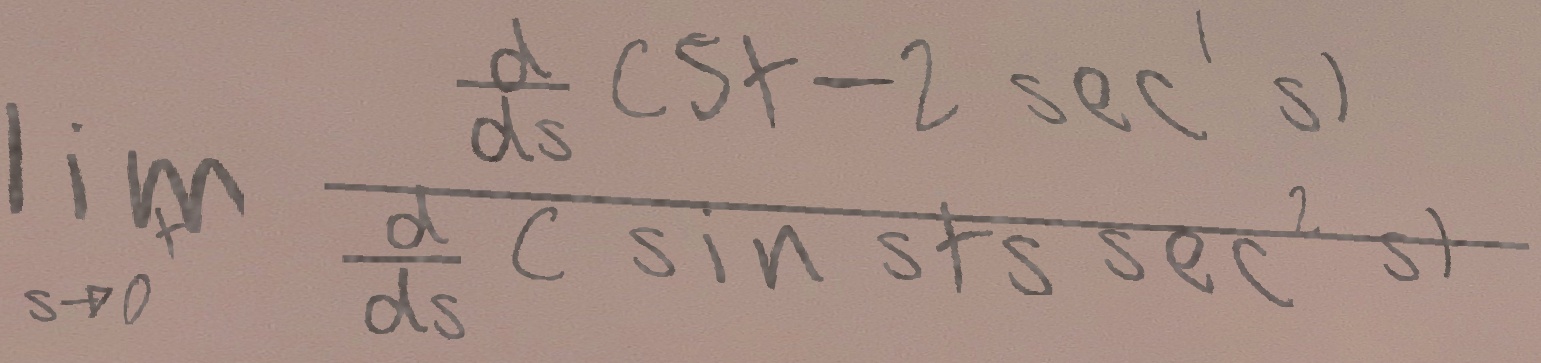 \lim_{s \to 0^+} \frac{\frac{d}{ds}(5+-2\sec^{1}s)}{\frac{d}{ds}(\sin s+s\sec^{2}s)}